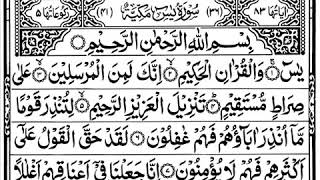 اٰیَاتُهَا ۸۳ (۳۶) سُوْرَةُ یٰسٓ مَكِّیَّةٌ (۴۱) رُكُوْعَاتُهَا ۵
بِسْمِ اللّٰهِ الرَّحْمٰنِ الرَّحِیْمِ
یٰسٓ ۚ وَالْقُرْاٰنِ الْحَكِیْمِ ۙ اِنَّكَ لَمِنَ الْمُرْسَلِیْنَ ۙ عَلٰی
صِرَاطٍ مُّسْتَقِیْمٍ ؕ تَنْزِیْلَ الْعَزِیْزِ الرَّحِیْمِ ۙ لِتُنْذِرَ قَوْمًا
مَّاۤ اُنْذِرَ اٰبَآؤُهُمْ فَهُمْ غٰفِلُوْنَ ۶ لَقَدْ حَقَّ الْقَوْلُ عَلٰۤی
اَكْثَرِهِمْ فَهُمْ لَا یُؤْمِنُوْنَ ۷ اِنَّا جَعَلْنَا فِیْۤ اَعْنَاقِهِمْ اَغْلٰلًا